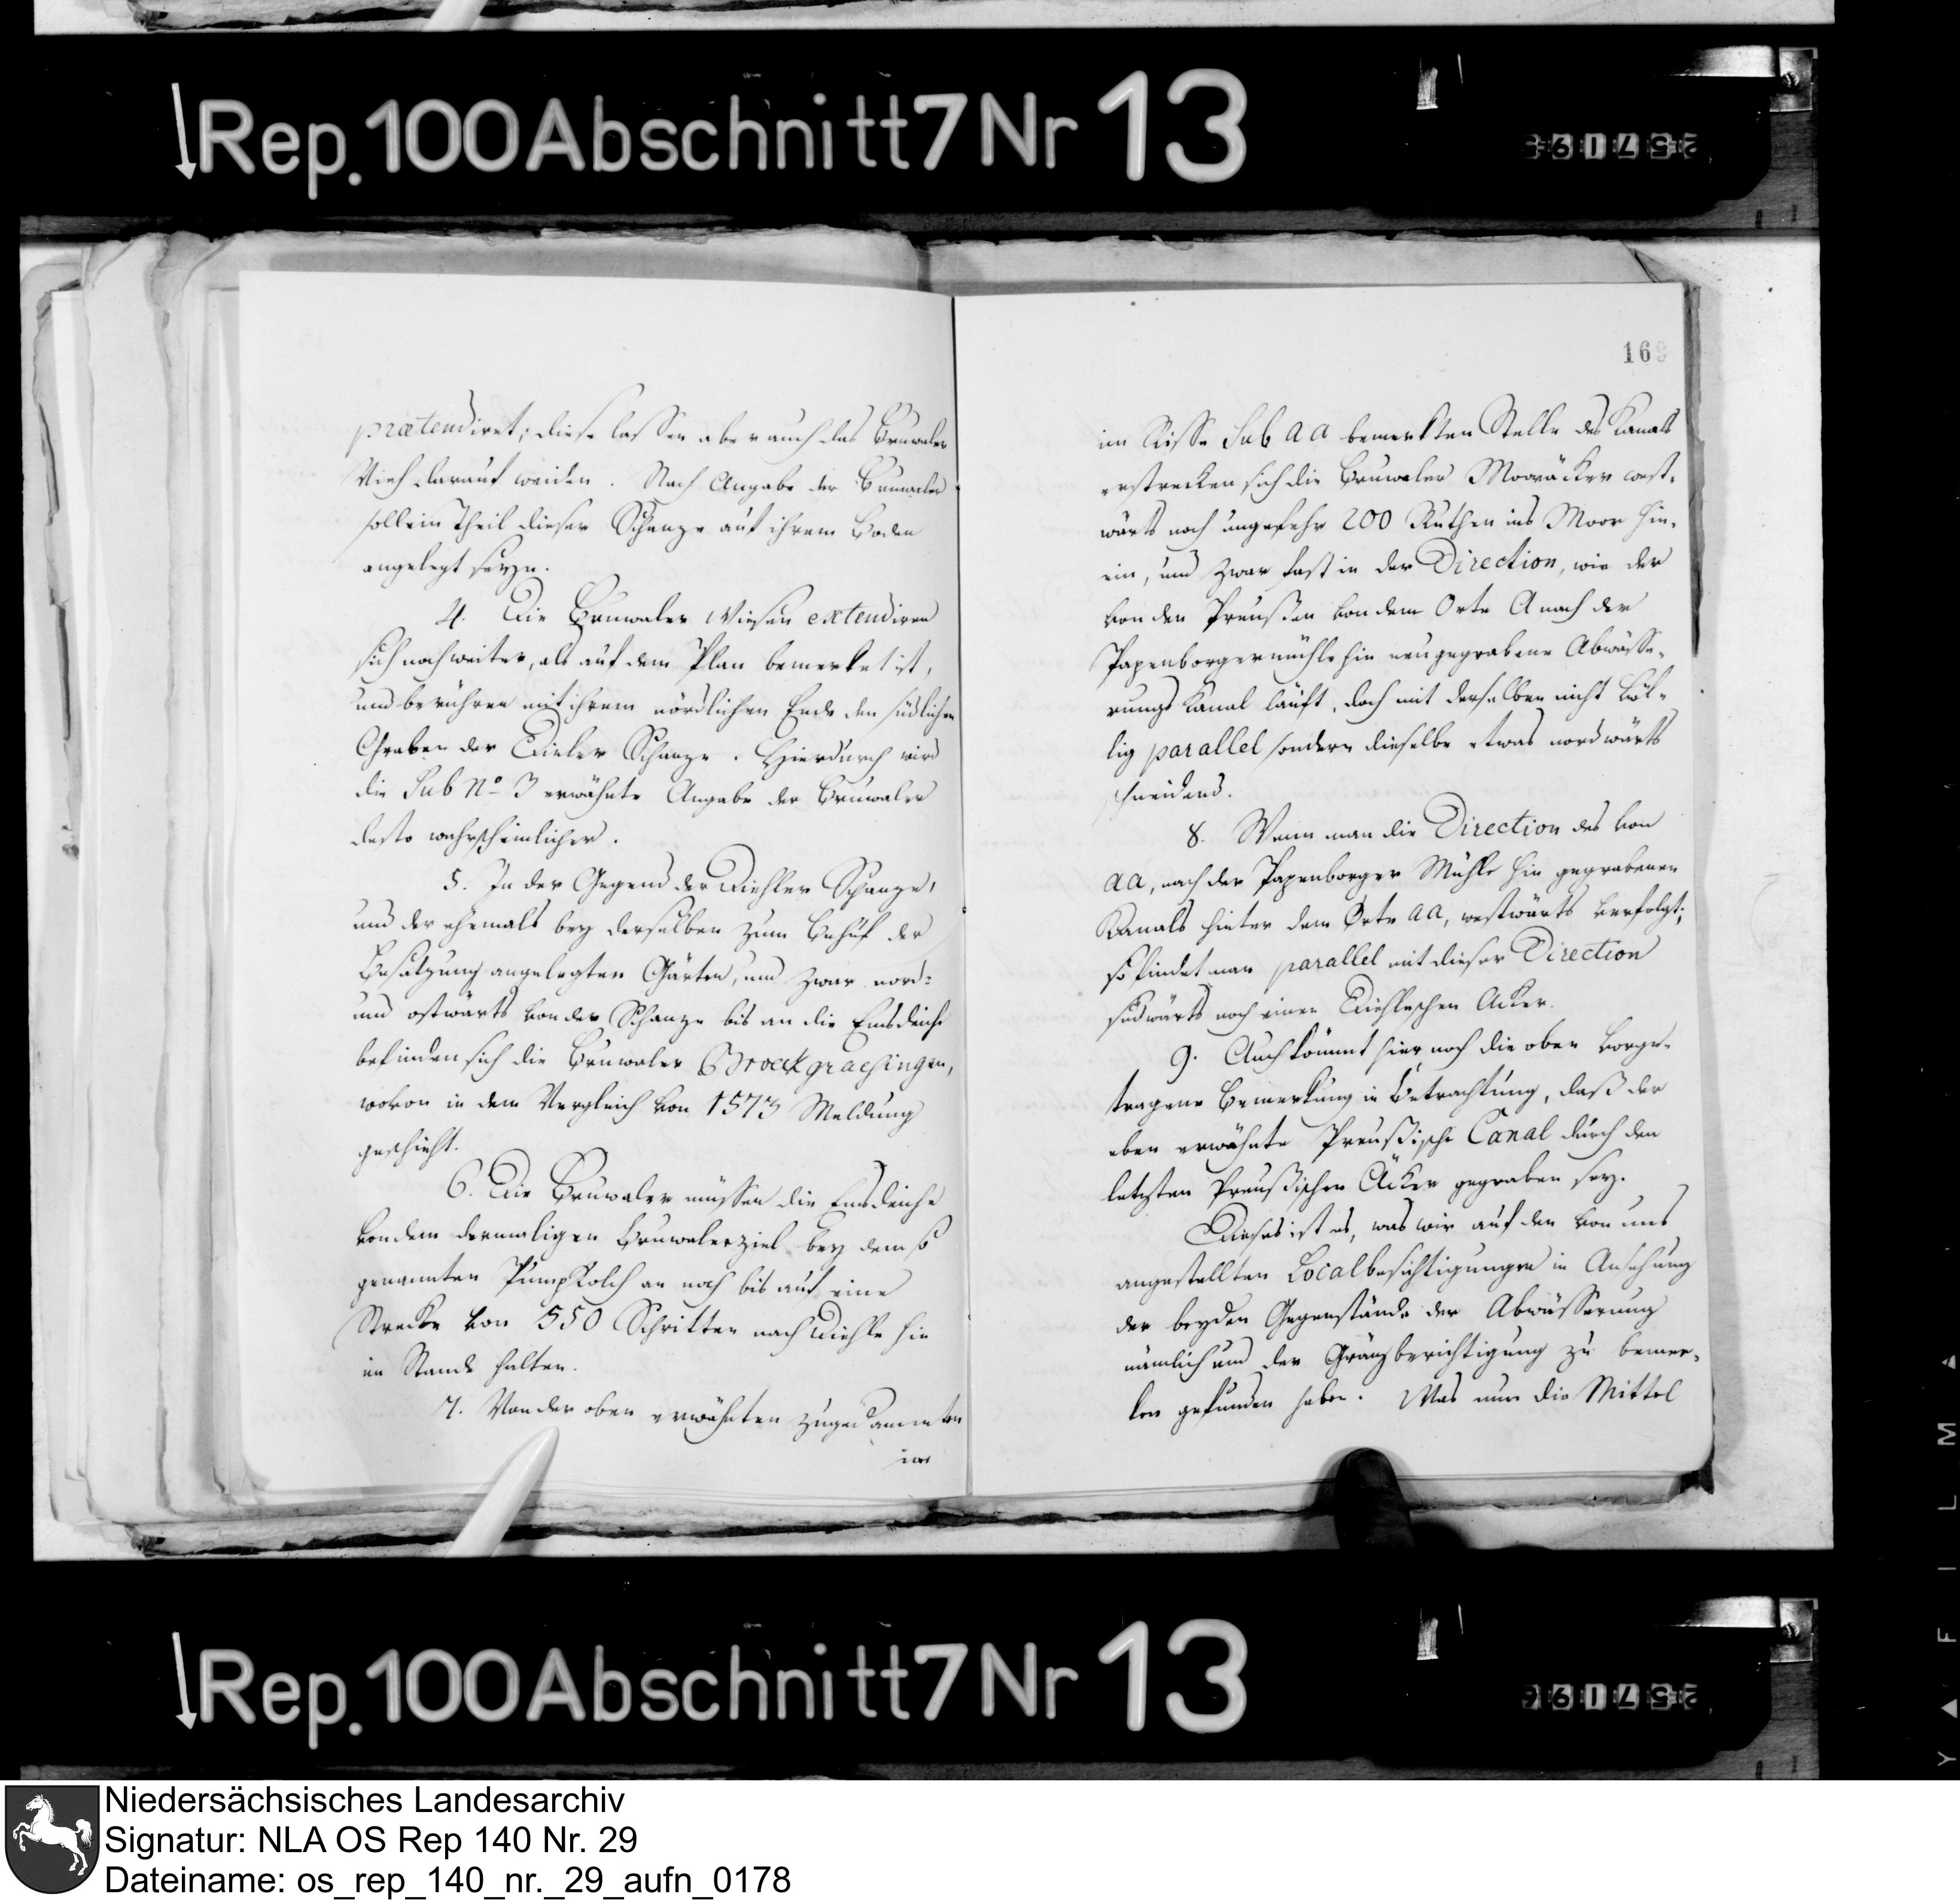 Rep. 100 Abschnitt 7 Nr 13
prætendiret; diese lassen aber auch das Bruwaler
Vieh darauf weiden. Nach Angabe der Bruwaler
soll ein Theil dieser Schanze auf ihrem Boden
angelegt seyn.
4. Die Bruwaler Wiesen extendiren
sich noch weiter, als auf dem Plan bemerket ist,
und berühren mit ihrem nördlichen Ende den südlichen
Graben der Dieler Schanze. Hierdurch wird
die Sub No 3 erwähnte Angabe der Bruwaler
desto wahrscheinlicher.
5. In der Gegend der Diehler Schanze,
und der ehemals bey derselben zum Behuf der
Besatzung angelegten Gärten, und zwar nord-
und ostwärts von der Schanze bis an die Emsdeiche
befinden sich die Bruwaler Broekgraesingen,
wovon in dem Vergleich von 1573 Meldung
geschieht.
6. Die Bruwaler müssen die Emsdeiche
von dem dermaligen Bruwalerziel bey dem so
genannten PumpKolch an noch bis auf eine
Strecke von 550 Schritten nach Diehle hin
im Stande halten.
7. Von der oben erwähnten zugedammten
im
169
im Risse Sub aa bemerkten Stelle des Kanals
erstrecken sich die Bruwaler Mooräcker west-
wärts noch ungefehr 200 Ruthen ins Moor hin-
ein, und zwar fast in der Direction, wie der
von den Preußen von dem Orte A nach der
Papenborgermühle hin neu gegrabene Abwässe-
rungs Kanal läuft, doch mit derselben nicht völ-
lig parallel sondern dieselbe etwas nordwärts
schneidend.
8. Wenn man die Direction des von
aa, nach der Papenborger Mühle hin gegrabenen
Kanals hinter dem Orte aa, westwärts verfolgt;
so findet man parallel mit dieser Direction
südwärts noch einen Diehlschen Acker.
9. Auch kömmt hier noch die oben vorge-
tragene Bemerkung in Betrachtung, daß der
eben erwähnte Preußische Canal durch den
letzten Preußischen Äcker gegraben sey.
Dieses ist es, was wir auf den von uns
angestellten Localbesichtigungen in Ansehung
der beyden Gegenstände der Abwässerung
nämlich und der Gränzberichtigung zu bemer-
ken gefunden haben. Was nun die Mittel
Rep. 100 Abschnitt 7 Nr 13
Niedersächsisches Landesarchiv
Signatur: NLA OS Rep 140 Nr. 29
Dateiname: os_rep_140_nr._29_aufn_0178